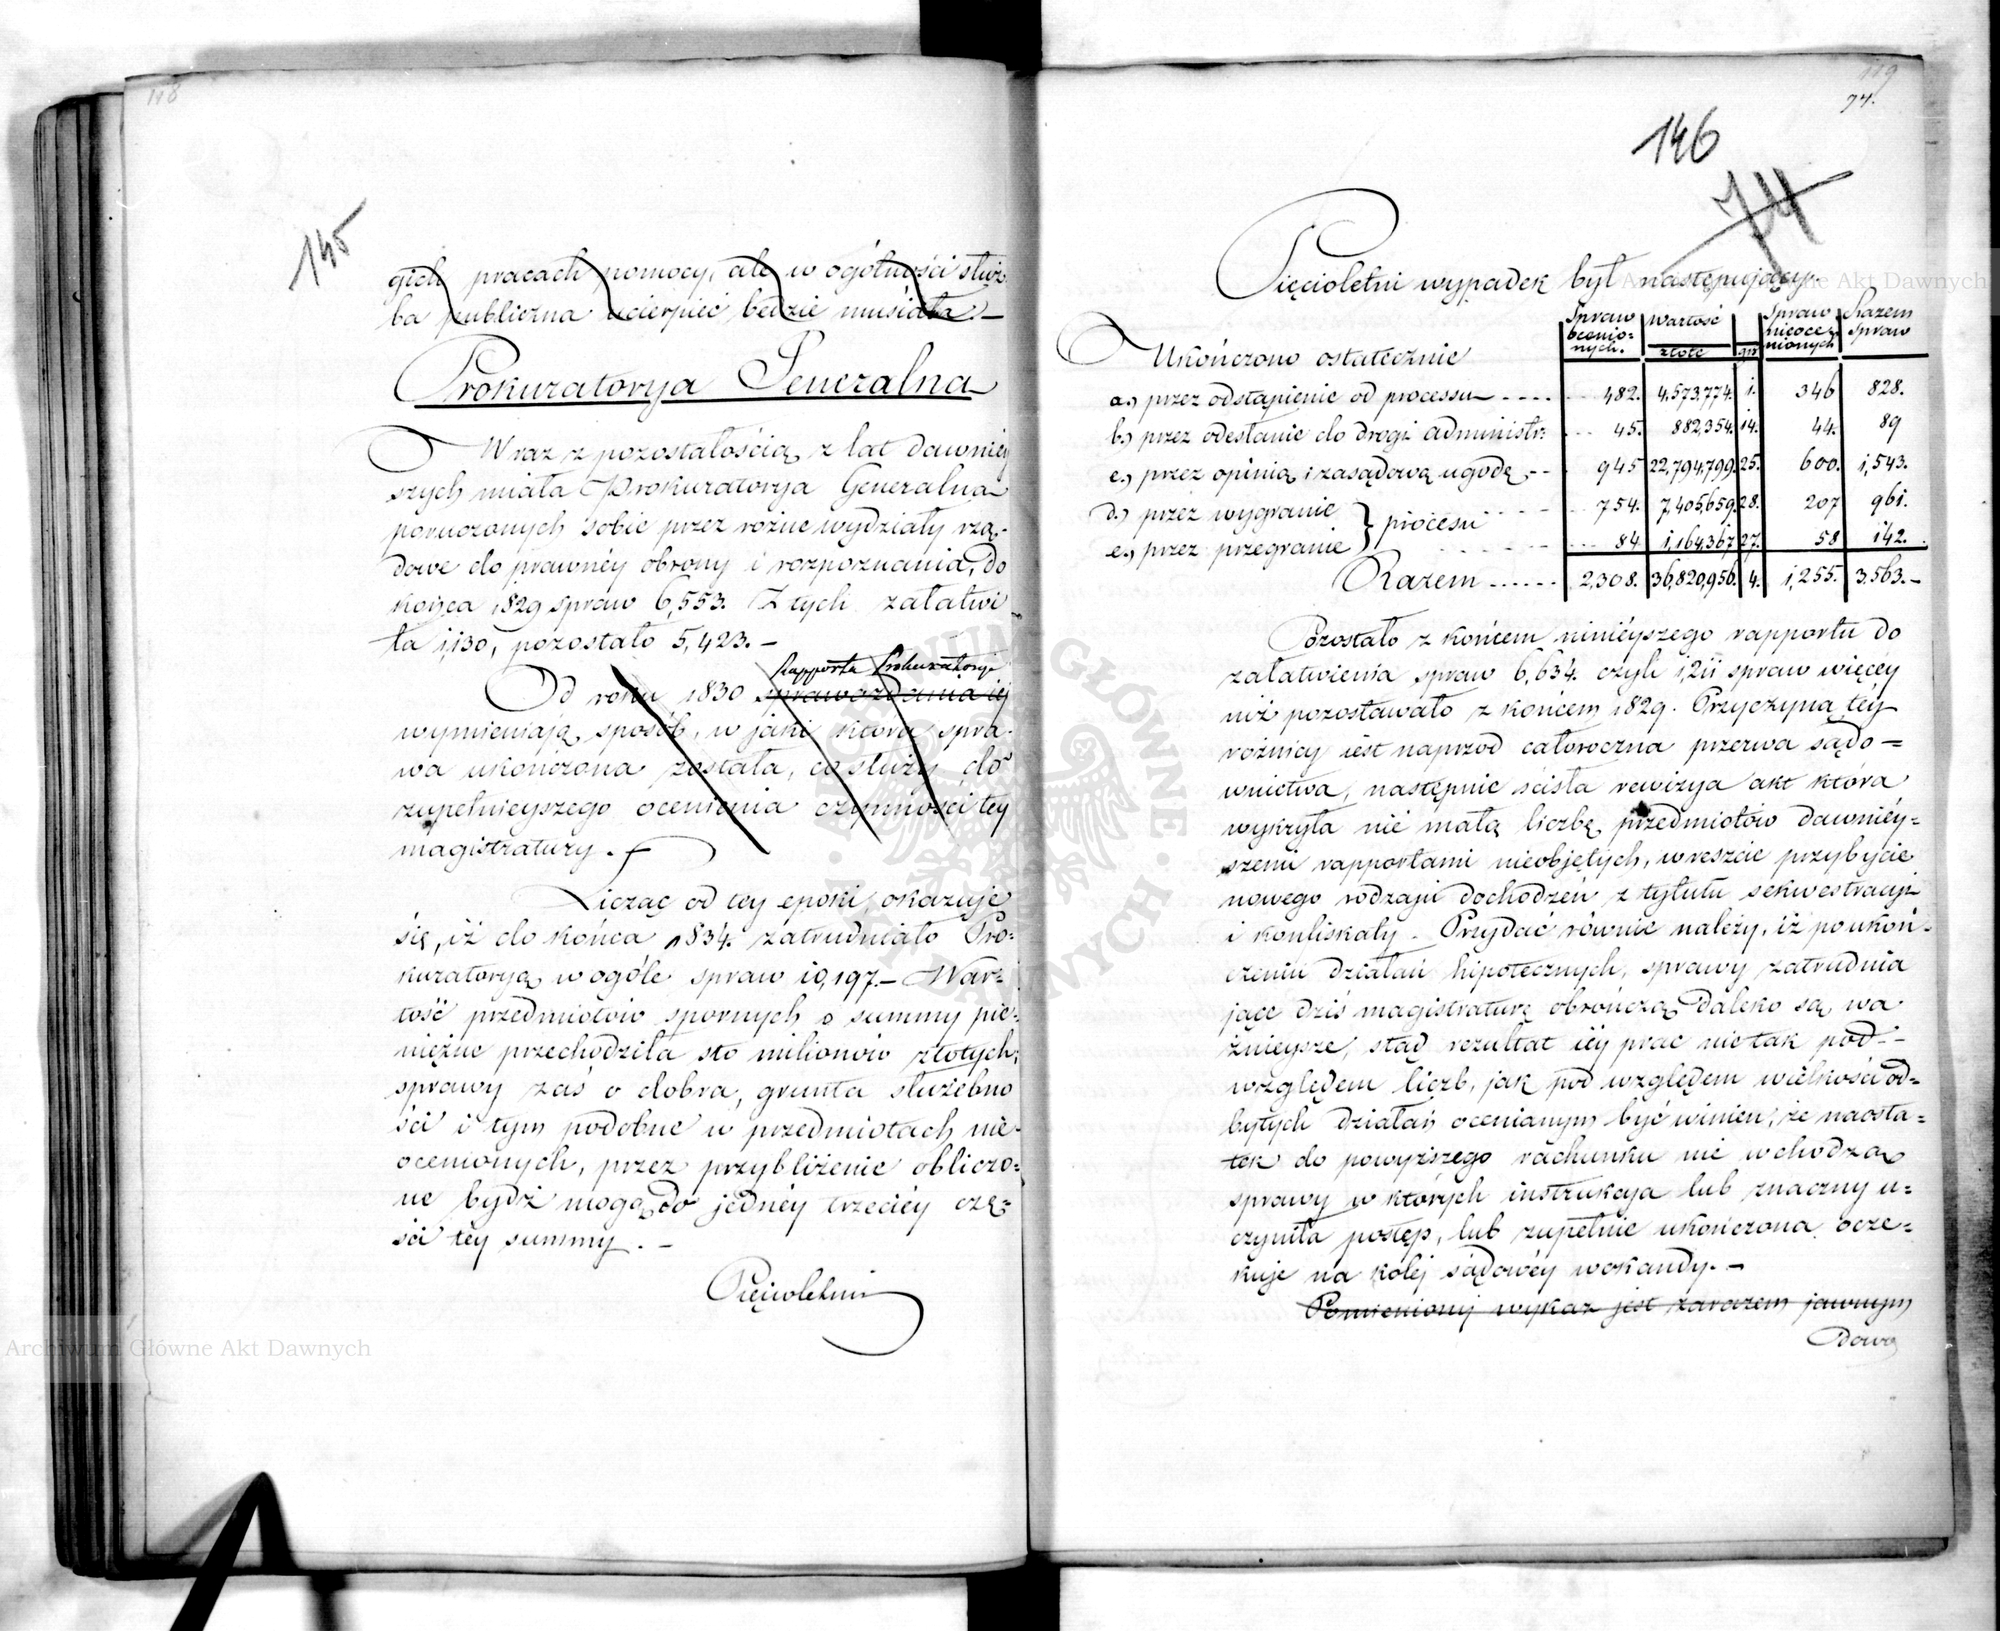 118
145
gich pracach pomocy, ale w ogólności służ-
ba publiczna ucierpieć będzie musiała. —
Prokuratorya Generalna
Wraz z pozostałością z lat dawniey
szych miała Prokuratorya Generalna
poruczonych sobie przez rożne wydziały rzą-
dowe do prawnéy obrony i rozpoznania, do
końca 1829 spraw 6,553. Z tych załatwi
ła 1,130, pozostało 5,423. —
Rapporta Prokuratoryi
Od roku 1830 sprawozdania iéj
wymieniają sposób, w jaki która spra-
wa ukończona została, co służy do
zupełnieyszego ocenienia czynności tey
magistratury.
Licząc od tey epoki, okazuje
się, iż do końca 1834. zatrudniało Pro-
kuratoryą w ogóle spraw 10,197. — War-
tość przedmiotów spornych o summy pie-
niężne przechodziła sto milionów złotych;
sprawy zaś o dobra, grunta służebno
ści i tym podobne w przedmiotach nie-
ocenionych, przez przybliżenie obliczo-
ne bydź mogą do jednéy trzeciéy czę-
ści tey summy. —
Pięcioletni
119
74.
146
74
Pięcioletni wypadek był następujący.
Spraw ocenio- nych. Wartość złote gr Spraw nieoce- nionych Razem spraw
Ukończono ostatecznie
a.) przez odstąpienie od processu - - - - 482. 4,573,774. 1. 346 828.
b.) przez odesłanie do drogi administr: - - - 45. 882,354. 14. 44. 89
c.) przez opinią i zasądową ugodę - - - 945 22,794,799. 25. 600. 1,543.
d.) przez wygranie } processu - - - 754. 7,405,659. 28. 207 961.
e.) przez przegranie - - - 84 1,164,367 27. 58 142.
Razem - - - - - - 2,308. 36,820,956. 4. 1,255. 3,563. —
Pozostało z końcem niniéyszego rapportu do
załatwienia spraw 6,634. czyli 1,211 spraw więcéy
niż pozostawało z końcem 1829. Przyczyną téy
rożnicy iest naprzod całoroczna przerwa sądo-
wnictwa, następnie ścisła rewizya akt która
wykryła nie małą liczbę przedmiotów dawniéy-
szemi rapportami nieobjętych, wreszcie przybycie
nowego rodzaju dochodzeń z tytułu sekwestracyi
i konfiskaty. Przydać równie należy, iż po ukoń-
czeniu działań hipotecznych, sprawy zatrudnia
jące dziś magistraturę obrończą daleko są wa
żnieysze, stąd rezultat iéy prac nie tak pod -
względem liczb, jak pod względem wielkości od-
bytych działań ocenianym być winien, że naosta-
tek do powyższego rachunku nie wchodzą
sprawy w których instrukcya lub znaczny u-
czyniła postęp, lub zupełnie ukończona ocze-
kuje na koléj sądowéy wokandy. —
Pomieniony wykaz jest zarazem jawnym
Dowo
Archiwum Główne Akt Dawnych
Archiwum Główne Akt Dawnych
ARCHIWUM GŁÓWNE AKT DAWNYCH